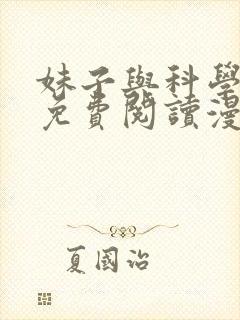 妹子與科學
免費閱讀漫
夏國治